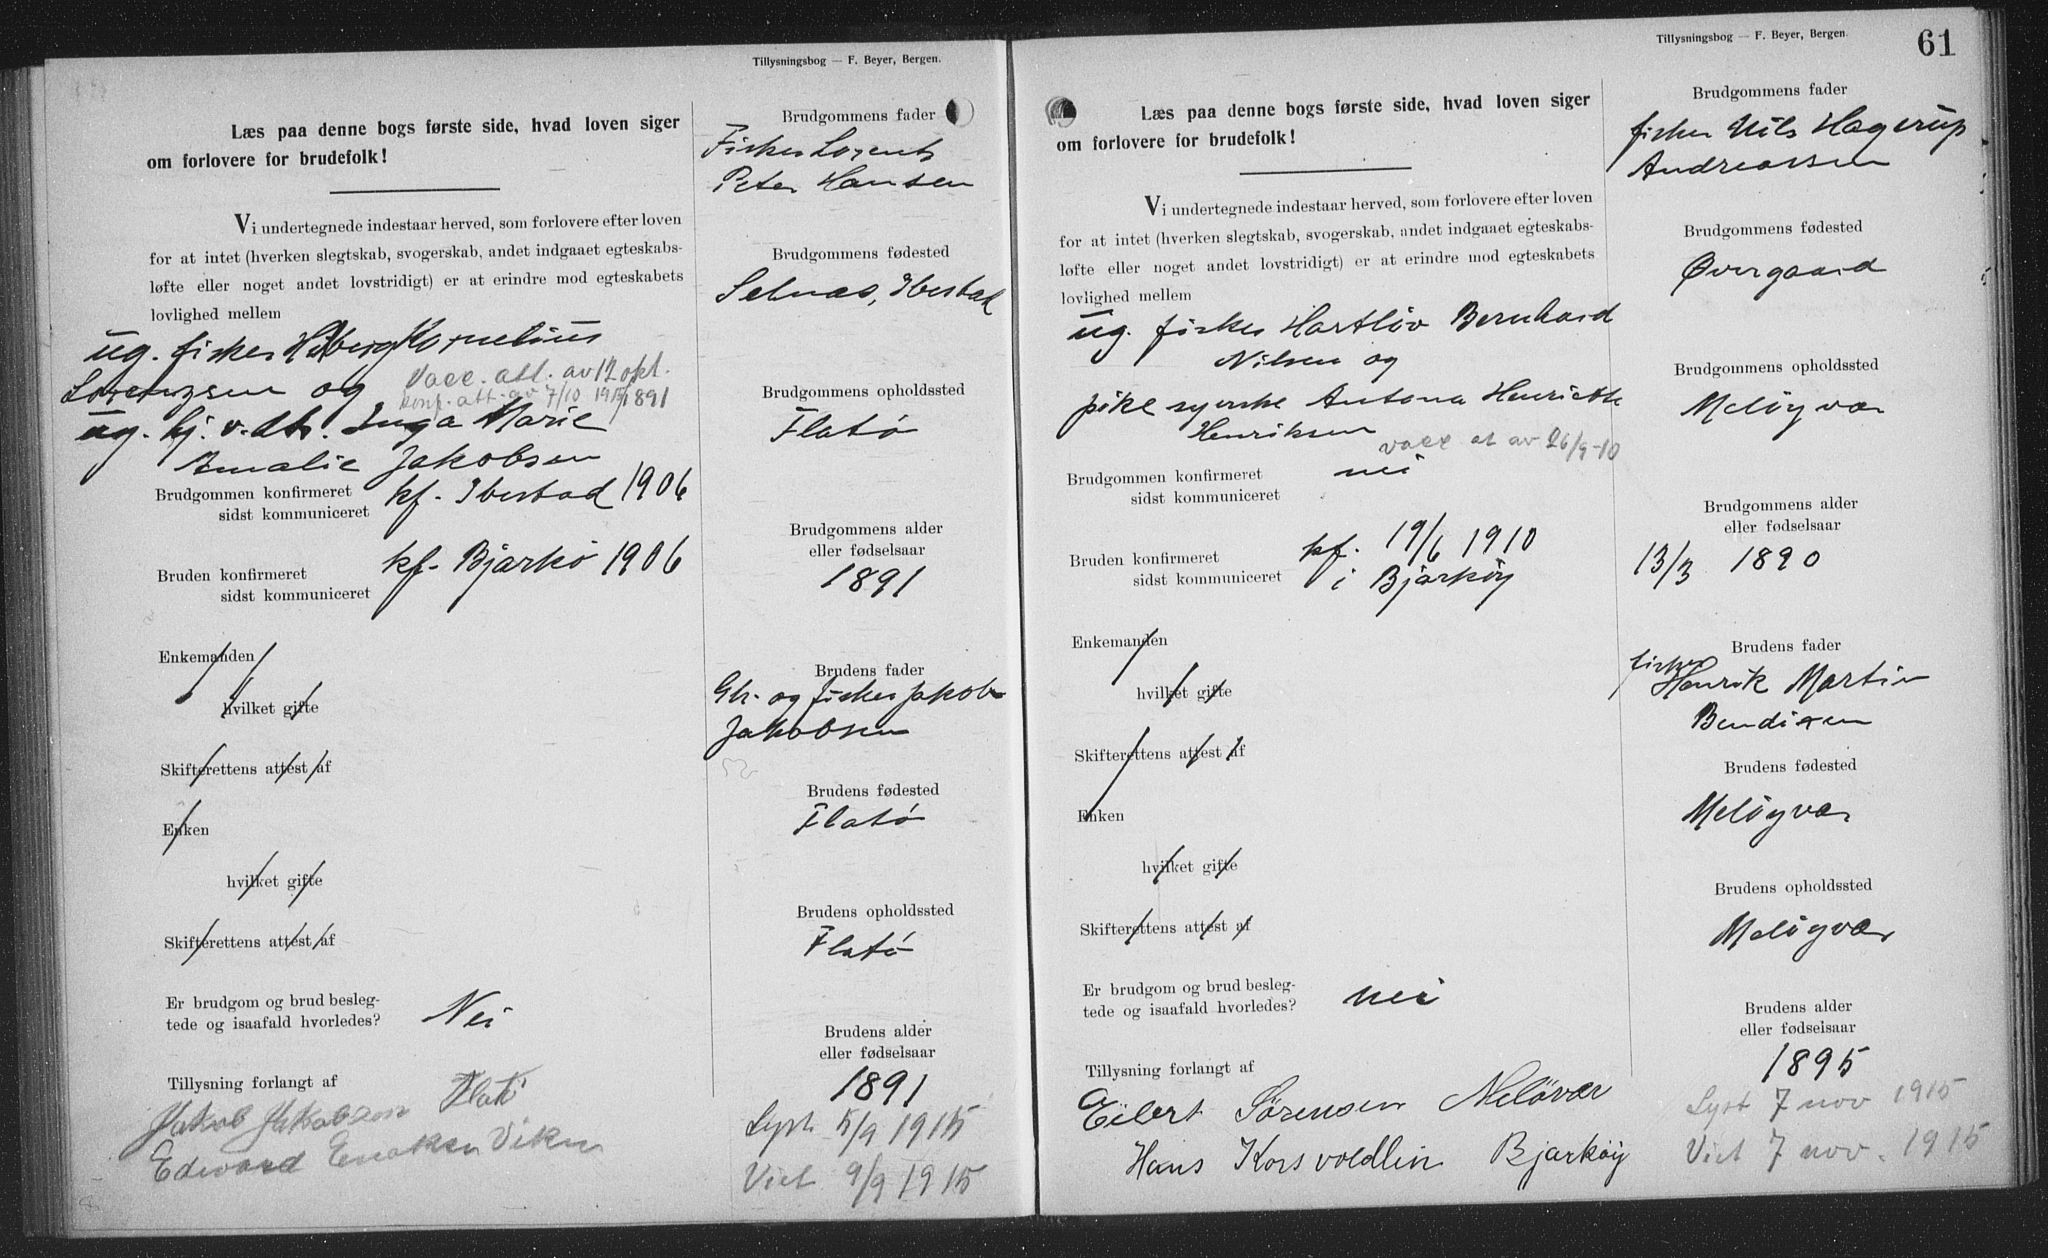 Tillysningsbog — F. Beyer, Bergen.
Læs paa denne bogs første side, hvad loven siger
om forlovere for brudefolk!
Vi undertegnede indestaar herved, som forlovere efter loven
for at intet (hverken slegtskab, svogerskab, andet indgaaet egteskabs-
løfte eller noget andet lovstridigt) er at erindre mod egteskabets
lovlighed mellem
ug. fisker Kornelius
Lorenzsen og
Vacc. att. av 12 okt.
konf. att. av 7/10 1915 1891
ug. hj. v. dtr. Inga Marie
Amalie Jakobsen
Brudgommen konfirmeret
sidst kommuniceret
kf. Ibestad 1906
Bruden konfirmeret
sidst kommuniceret
kf. Bjarkö 1906
Enkemanden
hvilket gifte
Skifterettens attest af
Enken
hvilket gifte
Skifterettens attest af
Er brudgom og brud besleg-
tede og isaafald hvorledes?
Nei
Tillysning forlangt af
Jakob Jakobsen Flatö
Edward Enoksen Viken
Brudgommens fader
Fisker Lorents
Peter Hansen
Brudgommens fødested
Selnæs, Ibestad
Brudgommens opholdssted
Flatö
Brudgommens alder
eller fødselsaar
1891
Brudens fader
Gbr. og fisker Jakob
Jakobsen
Brudens fødested
Flatö
Brudens opholdssted
Flatö
Brudens alder
eller fødselsaar
1891
Lyst 5/9 1915
Viet 9/9 1915
Tillysningsbog — F. Beyer, Bergen.
61
Læs paa denne bogs første side, hvad loven siger
om forlovere for brudefolk!
Vi undertegnede indestaar herved, som forlovere efter loven
for at intet (hverken slegtskab, svogerskab, andet indgaaet egteskabs-
løfte eller noget andet lovstridigt) er at erindre mod egteskabets
lovlighed mellem
ug. fisker Hartløv Bernhard
Nilsen og
pike syerske Antona Henriette
Henriksen
vacc at av 26/9-10
Brudgommen konfirmeret
sidst kommuniceret
nei
Bruden konfirmeret
sidst kommuniceret
kf. 19/6 1910
i Bjarköy
Enkemanden
hvilket gifte
Skifterettens attest af
Enken
hvilket gifte
Skifterettens attest af
Er brudgom og brud besleg-
tede og isaafald hvorledes?
nei
Tillysning forlangt af
Eilert Sørensen Meløvær
Hans Korsvoldlin Bjarkøy
Brudgommens fader
fisker Nils Hagerup
Andreassen
Brudgommens fødested
Øvergaard
Brudgommens opholdssted
Meløyvær
Brudgommens alder
eller fødselsaar
13/3 1890
Brudens fader
fisker
Henrik Martin
Bendixen
Brudens fødested
Meløyvær
Brudens opholdssted
Meløyvær
Brudens alder
eller fødselsaar
1895
Lyst 7 nov 1915
Viet 7 nov. 1915